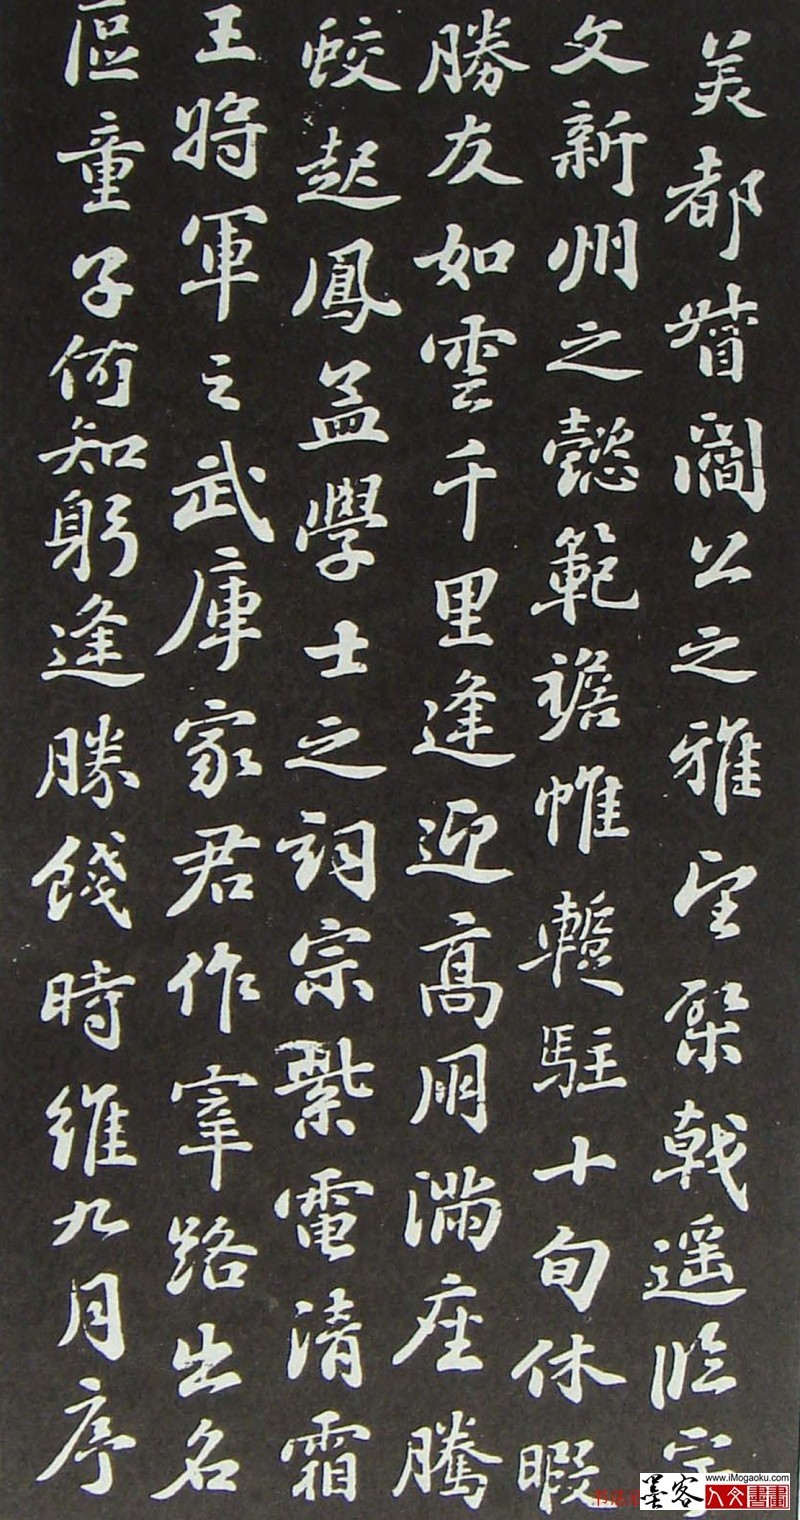 美都督閻公之雅望棨戟遥臨宇
文新州之懿範襜帷暫駐十旬休暇
勝友如雲千里逢迎高朋滿座騰
蛟起鳳孟學士之詞宗紫電清霜
王將軍之武庫家君作宰路出名
區童子何知躬逢勝餞時維九月序
墨客
www.iMogaoku.com
人文書畫